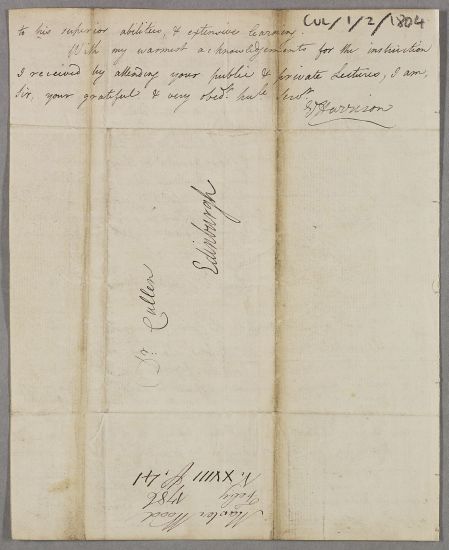 CUL/1/2/1804
to his superior abilities, & extensive learning.
With my warmest acknowledgements for the instruction
I received by attending your public & private Lectures, I am,
Sir, your grateful & very obedt. huble. Servt.
Harrison
Dr. Cullen
Edinburgh
Wood
Feby 1786
N. XVIII p. 141